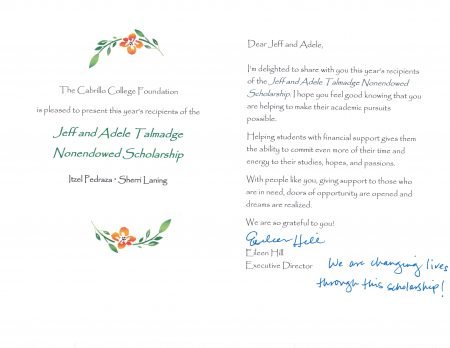 The Cabrillo College Foundation
is pleased to present this year's recipients of the
Jeff and Adele Talmadge
Nonendowed Scholarship
Itzel Pedraza • Sherri Laning
Dear Jeff and Adele,
I'm delighted to share with you this year's recipients
of the Jeff and Adele Talmadge Nonendowed
Scholarship. I hope you feel good knowing that you
are helping to make their academic pursuits
possible.
Helping students with financial support gives them
the ability to commit even more of their time and
energy to their studies, hopes, and passions.
With people like you, giving support to those who
are in need, doors of opportunity are opened and
dreams are realized.
We are so grateful to you!
Eileen Hill
Eileen Hill
Executive Director
We are changing lives
through this scholarship!